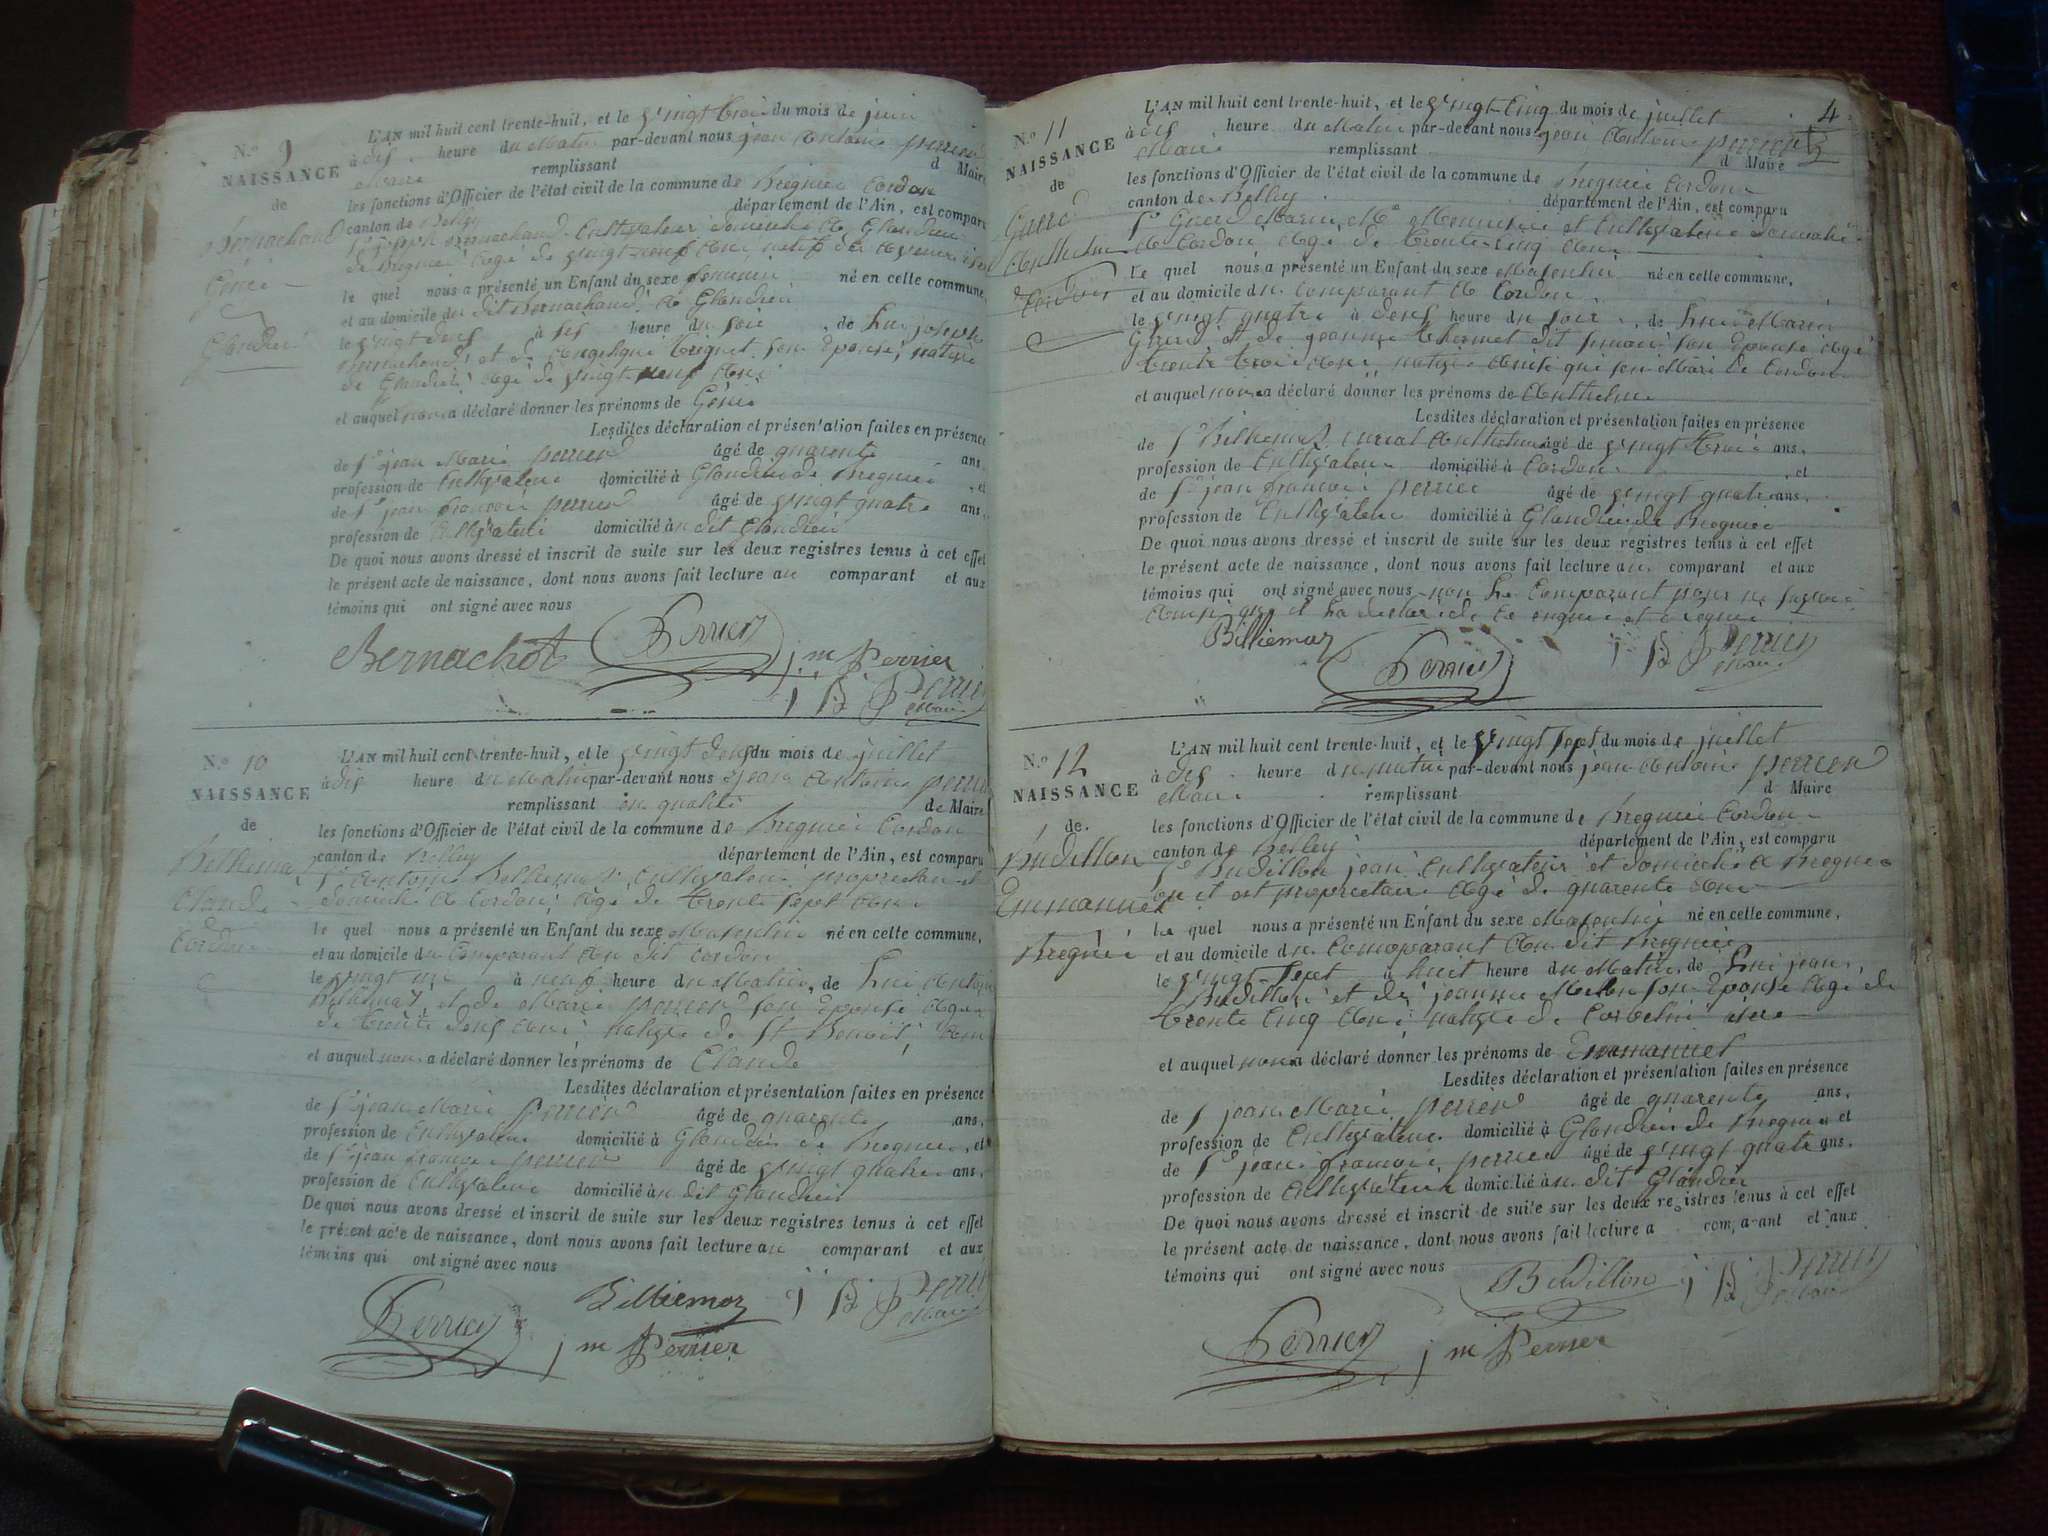 N.º 9
NAISSANCE
de
Bernachaud
Génie
Glandieu
L'AN mil huit cent trente-huit, et le vingt trois du mois de juin
à dis heure du Matin par-devant nous jean Antoine perrier
Maire remplissant d Maire
les fonctions d'Officier de l'état civil de la commune de Bregnier Cordon
canton de Belley département de l'Ain, est comparu
Sr joseph Bernachaud Cultivateur domicilié à Glandieu
de Bregnier Agé de vingt neuf Ans, natif de
le quel nous a présenté un Enfant du sexe feminin né en celle commune,
et au domicile du dit Bernachaud à Glandieu
le vingt deus à sis heure du soir, de Lui joseph
Bernachaud et de Angelique Trignet son Epouse, native
de Glandieu Agé de vingt neuf Ans
et auquel nous a déclaré donner les prénoms de Génie
Lesdites déclaration et présentation faites en présence
de Sr jean Marie perrier âgé de quarente ans,
profession de Cultivateur domicilié à Glandieu de Bregnier, et
de Sr jean francois perrier âgé de vingt quatre ans,
profession de Cultivateur domicilié à u dit Glandieu
De quoi nous avons dressé et inscrit de suite sur les deux registres tenus à cet effet
le présent acte de naissance, dont nous avons fait lecture au comparant et aux
témoins qui ont signé avec nous
Bernachot Perrier j m Perrier
j B Perrier
Maire
N.º 10
NAISSANCE
de
Billiemaz
Claude
Cordon
L'AN mil huit cent trente-huit, et le vingt deus du mois de juillet
à dis heure du Matin par-devant nous jean Antoine perrier
remplissant en qualité de Maire
les fonctions d'Officier de l'état civil de la commune de Bregnier Cordon
canton de Belley département de l'Ain, est comparu
Sr Antoine Billiemaz Cultivateur propriétaire et
domicilié à Cordon, Agé de trente sept Ans
le quel nous a présenté un Enfant du sexe Masculin né en celle commune,
et au domicile du Comparant Au dit Cordon
le vingt un à neuf heure du Matin, de Lui Antoine
Billiemaz et de Marie perrier son Epouse Agée
de trente deus Ans native de St Benoit, Ain
et auquel nous a déclaré donner les prénoms de Claude
Lesdites déclaration et présentation faites en présence
de Sr jean Marie perrier âgé de quarente ans,
profession de Cultivateur domicilié à Glandieu de Bregnier, et
de Sr jean francois perrier âgé de vingt quatre ans,
profession de Cultivateur domicilié à u dit Glandieu
De quoi nous avons dressé et inscrit de suite sur les deux registres tenus à cet effet
le présent acte de naissance, dont nous avons fait lecture au comparant et aux
témoins qui ont signé avec nous
Perrier Billiemaz j B Perrier
j m Perrier Maire
4
N.º 11
NAISSANCE
de
Guerd
Anthelme
Cordon
L'AN mil huit cent trente-huit, et le vingt-Cinq du mois de juillet
à dis heure du Matin par-devant nous jean Antoine perrier
Maire remplissant d Maire
les fonctions d'Officier de l'état civil de la commune de Bregnier Cordon
canton de Belley département de l'Ain, est comparu
Sr Guerd Marin Me Menuisier et Cultivateur domicilié
à Cordon Agé de trente-cinq Ans
le quel nous a présenté un Enfant du sexe Masculin né en celle commune,
et au domicile du Comparant à Cordon
le vingt quatre à deus heure du soir, de Lui Marin
Guerd et de jeanne Thermet dit simon son Epouse Agé
trente trois Ans, native Ainsi que son Mari de Cordon
et auquel nous a déclaré donner les prénoms de Anthelme
Lesdites déclaration et présentation faites en présence
de Sr Billiemaz Anthelme âgé de vingt trois ans,
profession de Cultivateur domicilié à Cordon, et
de Sr jean francois perrier âgé de vingt quatre ans,
profession de Cultivateur domicilié à Glandieu de Bregnier
De quoi nous avons dressé et inscrit de suite sur les deux registres tenus à cet effet
le présent acte de naissance, dont nous avons fait lecture au comparant et aux
témoins qui ont signé avec nous non Le Comparant pour ne savoir
Ainsi qu'il L'a déclaré de ce enquis et requis
Billiemaz Perrier j B Perrier
Maire
N.º 12
NAISSANCE
de
Budillon
Emmanuel
Bregnier
L'AN mil huit cent trente-huit, et le vingt sept du mois de juillet
à dis heure du matin par-devant nous jean Antoine perrier
Maire remplissant d Maire
les fonctions d'Officier de l'état civil de la commune de Bregnier Cordon
canton de Belley département de l'Ain, est comparu
Sr Budillon jean Cultivateur et domicilié à Bregnier
ou il est propriétaire Agé de quarente Ans
le quel nous a présenté un Enfant du sexe Masculin né en celle commune,
et au domicile du Comparant Au dit Bregnier
le vingt-sept à huit heure du Matin, de Lui jean
Budillon et de jeanne Mellon son Epouse Agé de
trente Cinq Ans native de Corbelin isère
et auquel nous a déclaré donner les prénoms de Emmanuel
Lesdites déclaration et présentation faites en présence
de S jean Marie perrier âgé de quarente ans,
profession de Cultivateur domicilié à Glandieu de Bregnier et
de Sr jean francois perrier âgé de vingt quatre ans,
profession de Cultivateur domicilié à u dit Glandieu
De quoi nous avons dressé et inscrit de suite sur les deux registres tenus à cet effet
le présent acte de naissance, dont nous avons fait lecture a comparant et aux
témoins qui ont signé avec nous
Budillon j B Perrier
Maire
Perrier j m Perrier